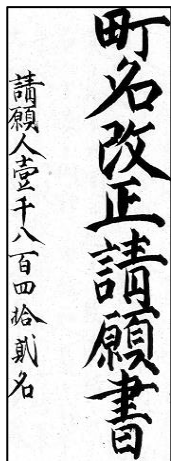 町名改正請願書
請願人壹千八百四拾貳名